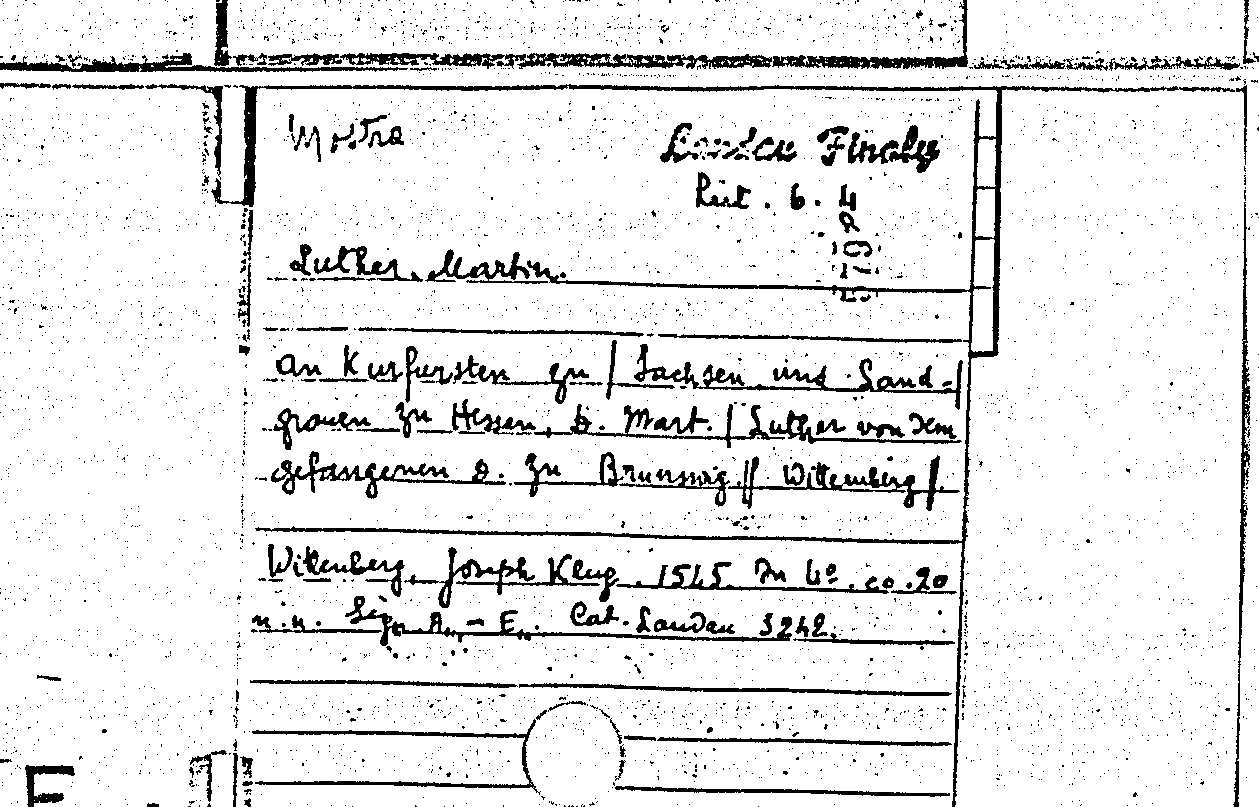 Mostra
Landau Finaly
Rist. 6. 4
Luther, Martin.
An Kurfursten zu | Sachsen und Land-|
graven zu Hessen, D. Mart. | Luther von dem
gefangenen D. zu Brunswig || Wittemberg |.
Wittenberg, Joseph Klug. 1545. In 4º. cc. 20
n.n. Sign. A - E. Cat. Landau 3242.
E